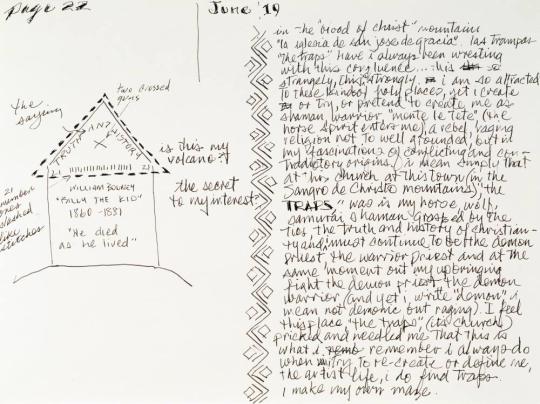 page 22
June '19
two crossed guns
the saying
TRUTH AND HISTORY
is this my
volcano?
the secret
to my interest?
21
21
WILLIAM BONNEY
"BILLY THE KID"
1860-1881
"He died
as he lived"
21
slashed
like
stretches
in the "blood of christ" mountains
"la iglesia de san jose de gracia". las trampas
"the traps" have i always been wresting
with this confluence... this
strangely, this strongly. i am so attracted
to these kinds of holy places, yet i create
or try, or pretend to create me as
shaman warrior "mente le tete" (the
horse spirit enters me), a rebel, raging
religion not to well a founded, but in
my fascinations of conflicting and con-
tradictory origins, i mean simply that
at this church at this town (in the
Sangro de Christo mountains) "the
TRAPS," was is my horse, wolf,
samurai shaman grasped by the
ties the truth and history of christian-
ty and must continue to be the demon
priest the warrior priest and at the
same moment out my upbringing
fight the demon priest the demon
warrior (and yet i write "demon" i
mean not demonic but raging). I feel
this place, "the traps" (its church)
pricked and needled me that this is
what i remember i always do
when try to re-create or define me,
the artist life, i do find traps.
i make my own maze.